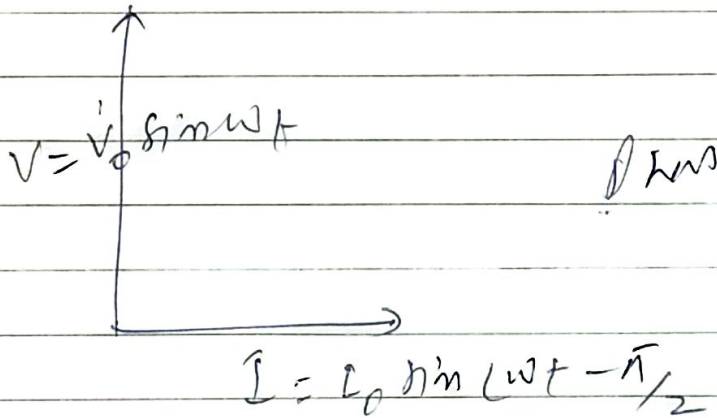 V = V₀ sin ωt
I = I₀ sin (ωt - π/2